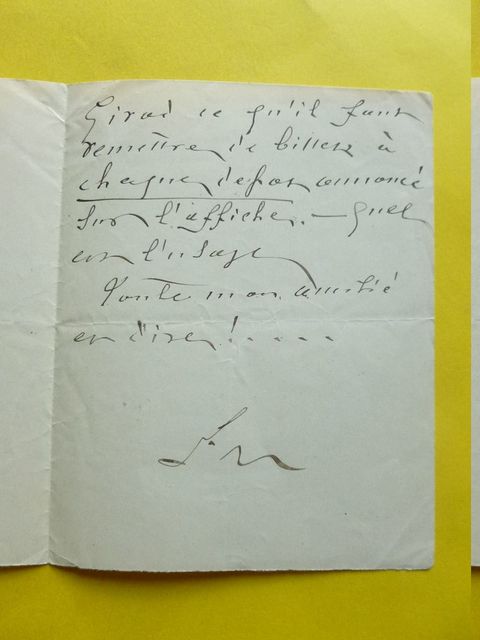 Girod ce qu'il faut
remettre de billets à
chaque depot annoncé
sur l'affiche. — Quel
est l'usage
Toute mon amitié
et